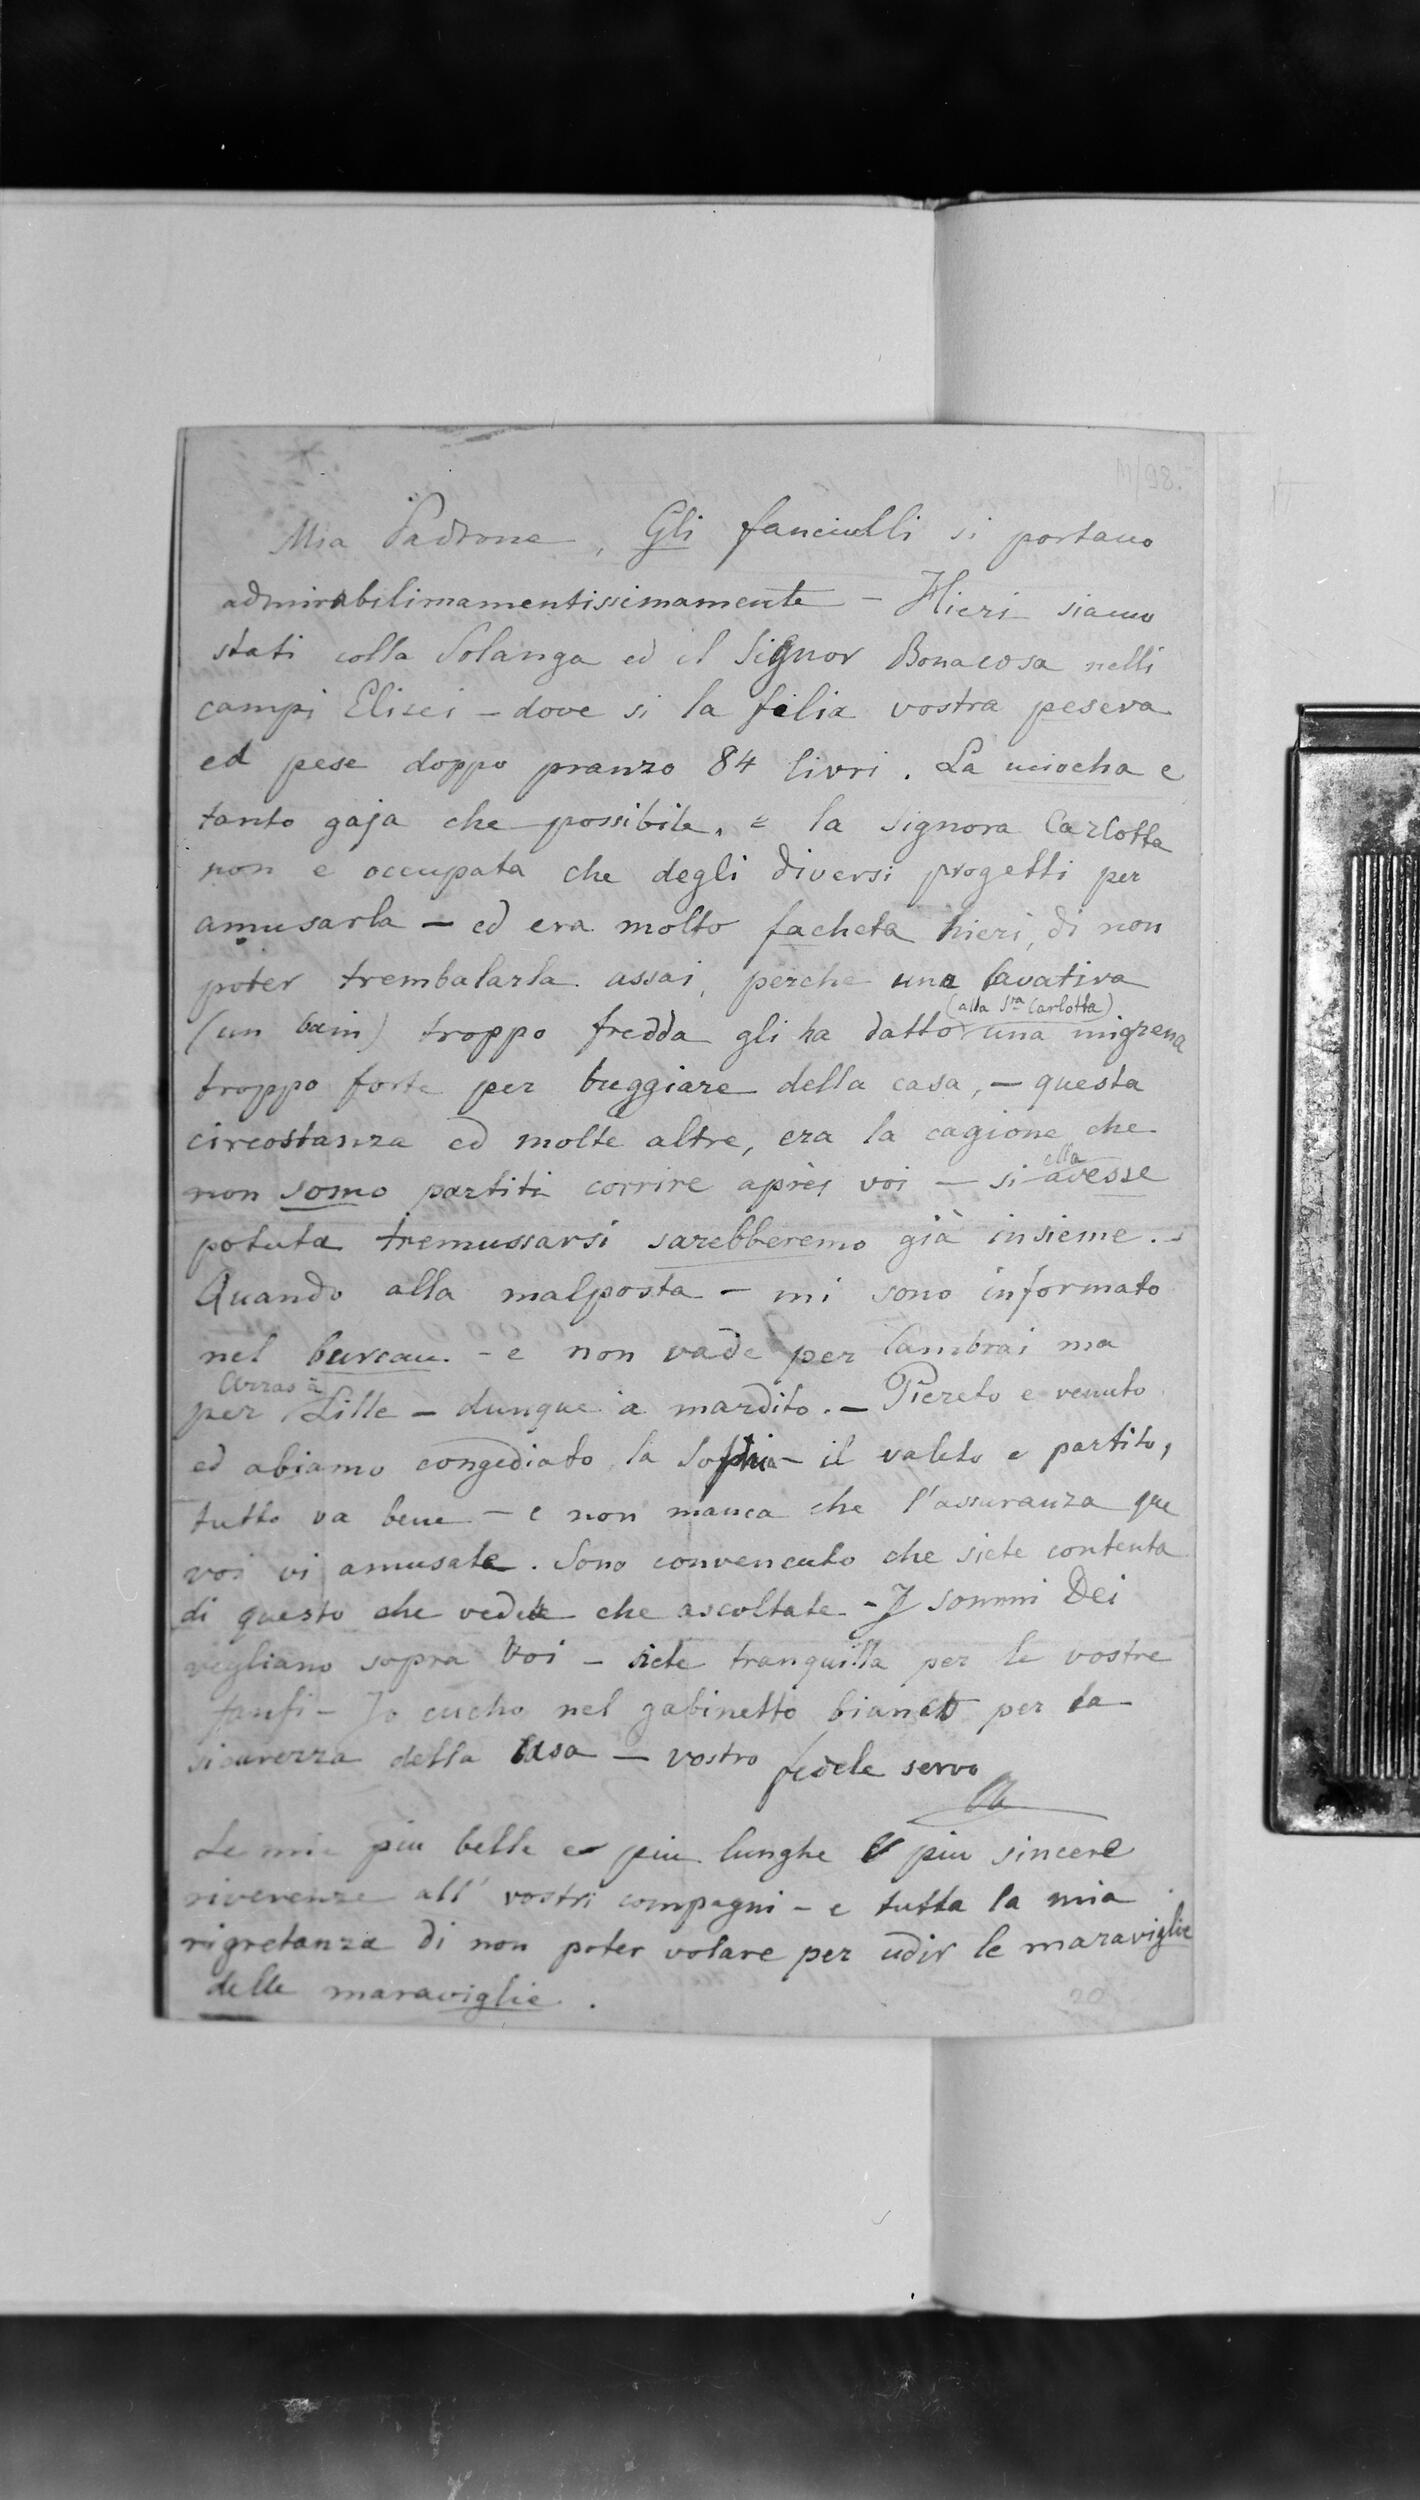 M/98.
Mia Padrona, Gli fanciulli si portano
admirabilimamentissimamente - Hieri siamo
stati colla Solanga ed il Signor Bonacosa nelli
campi Elisei - dove si la filia vostra peseva
ed pese doppo pranzo 84 livri. La miocha e
tanto gaja che possibile. e la signora Carlotta
non e occupata che degli diversi progetti per
amusarla - ed era molto facheta hieri, di non
poter trembalarla assai, perche una lavativa
(un bain) troppo fredda gli ha datto (alla Sra Carlotta) una migrena
troppo forte per buggiare della casa, - questa
circostanza ed molte altre, era la cagione che
non somo partiti corrire après voi - si ella avesse
potuta tremussarsi sarebberemo già insieme. -
Quando alla malposta - mi sono informato
nel bureau. - e non vade per Cambrai ma
per Arras à Lille - dunque à mardito. - Piereto e venuto
ed abiamo congediato la Sophia - il valeto e partito,
tutto va bene - e non manca che l'assuranza que
voi vi amusate. Sono convencuto che siete contenta
di questo che vedete che ascoltate - I sommi Dei
vegliano sopra Voi - siete tranquilla per le vostre
fanfi - Io cucho nel gabinetto bianco per la
sicurezza della casa - vostro fedele servo
Le mie piu belle e piu lunghe e piu sincere
riverenze all' vostri compagni - e tutta la mia
rigretanza di non poter volare per udir le maraviglie
delle maraviglie.
20